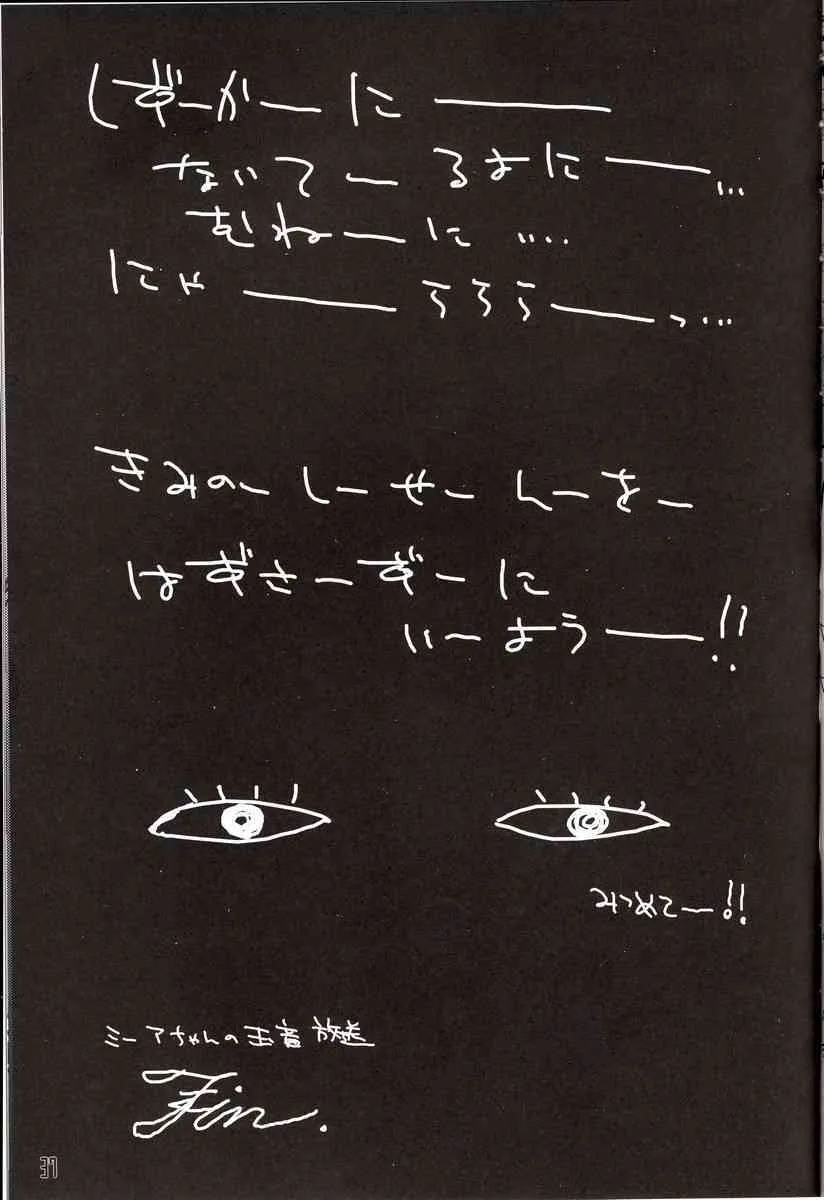 しずーがーにー
ないてーるよにー…
むねーに‥‥
にゃーーろろろーっ…
きみのーしーせーんーをー
はずさーずーに
いーようー!!
みつめてー!!
ミーアちゃんの玉音放送
Fin.
37